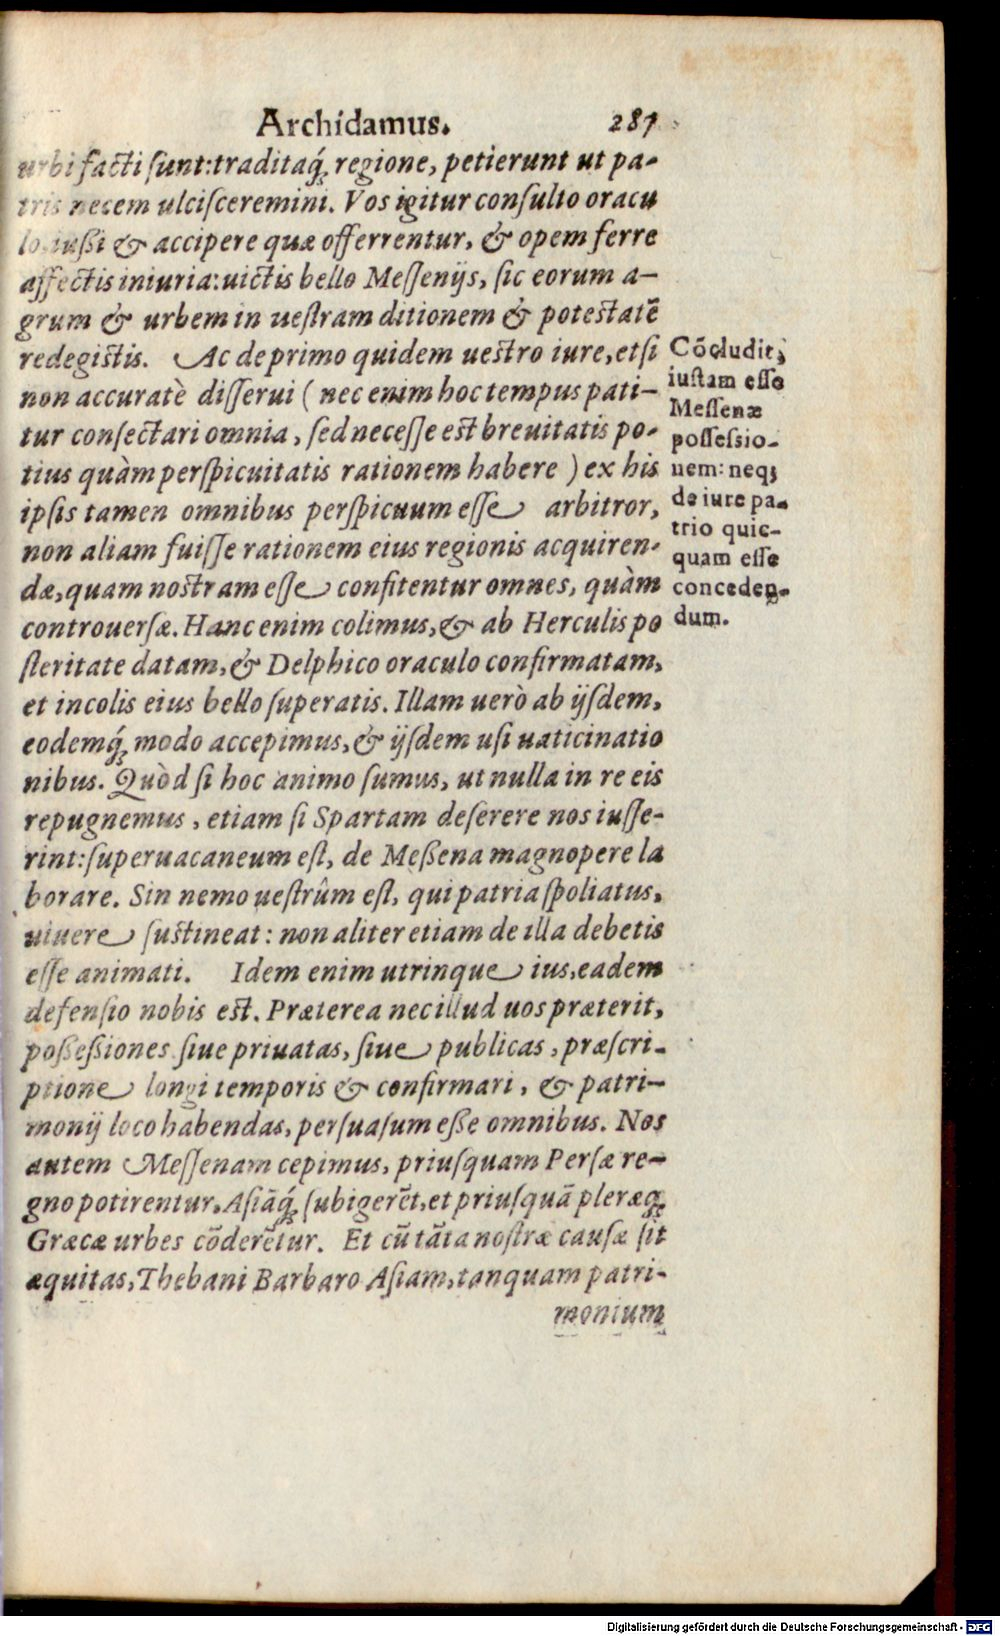 Archidamus. 287
urbi facti sunt: traditaq́; regione, petierunt ut pa-
tris necem ulcisceremini. Vos igitur consulto oracu
lo, iußi & accipere quæ offerrentur, & opem ferre
affectis iniuria: uictis bello Messenijs, sic eorum a-
grum & urbem in uestram ditionem & potestatē
redegistis. Ac de primo quidem uestro iure, etsi
non accuratè disserui ( nec enim hoc tempus pati-
tur consectari omnia, sed necesse est breuitatis po-
tius quàm perspicuitatis rationem habere ) ex his
ipsis tamen omnibus perspicuum esse arbitror,
non aliam fuisse rationem eius regionis acquiren-
dæ, quam nostram esse confitentur omnes, quàm
controuersæ. Hanc enim colimus, & ab Herculis po
steritate datam, & Delphico oraculo confirmatam,
et incolis eius bello superatis. Illam uerò ab ijsdem,
eodemq́; modo accepimus, & ijsdem usi uaticinatio
nibus. Quòd si hoc animo sumus, ut nulla in re eis
repugnemus, etiam si Spartam deserere nos iusse-
rint: superuacaneum est, de Meßena magnopere la
borare. Sin nemo uestrûm est, qui patria spoliatus,
uiuere sustineat: non aliter etiam de illa debetis
esse animati. Idem enim utrinque ius, eadem
defensio nobis est. Præterea nec illud uos præterit,
poßeßiones siue priuatas, siue publicas, præscri-
ptione longi temporis & confirmari, & patri-
monij loco habendas, persuasum eße omnibus. Nos
autem Messenam cepimus, priusquam Persæ re-
gno potirentur, Asiāq́; subigerēt, et priusquā pleræq;
Græcæ urbes cōderētur. Et cū tāta nostræ causæ sit
æquitas, Thebani Barbaro Asiam, tanquam patri-
monium
Cōcludit,
iustam esse
Messenæ
possessio-
nem: neq;
de iure pa-
trio quic-
quam esse
conceden-
dum.
Digitalisierung gefördert durch die Deutsche Forschungsgemeinschaft - DFG